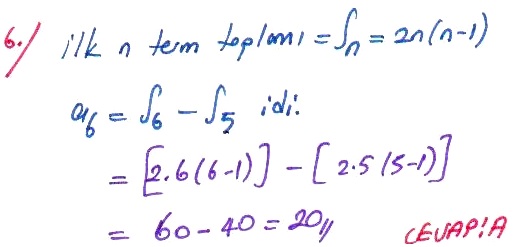 6./ ilk n term toplamı = Sn = 2n(n-1)
a6 = S6 - S5 idi.
= [2.6(6-1)] - [2.5(5-1)]
= 60 - 40 = 20//
CEVAP: A